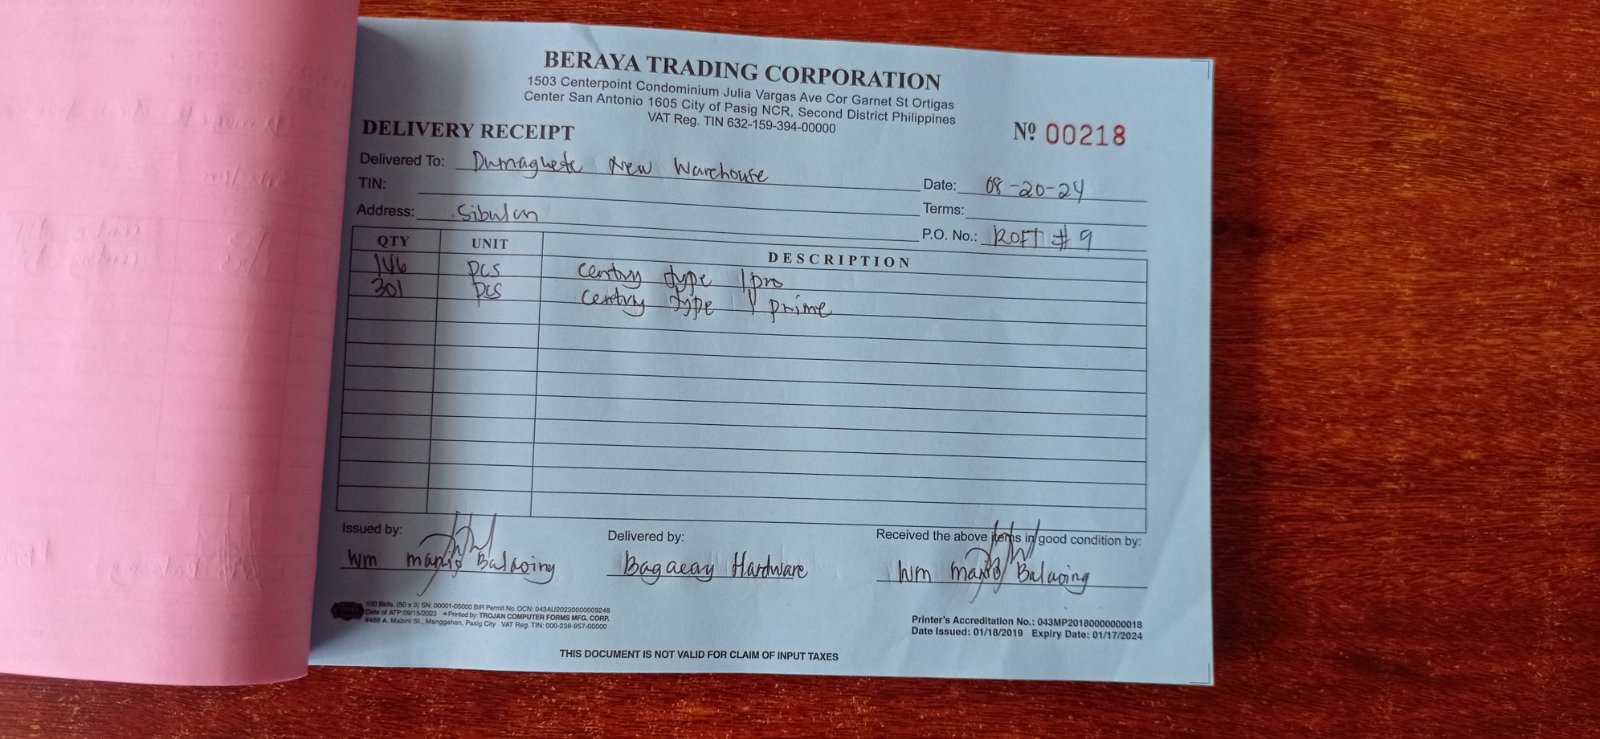 BERAYA TRADING CORPORATION
1503 Centerpoint Condominium Julia Vargas Ave Cor Garnet St Ortigas
Center San Antonio 1605 City of Pasig NCR, Second District Philippines
VAT Reg. TIN 632-159-394-00000
DELIVERY RECEIPT
Nº 00218
Delivered To: Dumaguete New Warehouse
Date: 08-20-24
TIN:
Terms:
Address: Sibulan
P.O. No.: ROFT # 9
QTY UNIT DESCRIPTION
146 pcs centry type 1 pro
301 pcs centry type 1 prime
Issued by:
Delivered by:
Received the above items in good condition by:
WM Balaoing
Bagacay Hardware
WM Balaoing
100 Bklts. (50 x 3) SN: 00001-05000 BIR Permit No. OCN: 043AU20230000009248
Date of ATP:09/15/2023 *Printed by: TROJAN COMPUTER FORMS MFG. CORP.
#488 A. Mabini St., Manggahan, Pasig City VAT Reg. TIN: 000-238-957-00000
Printer's Accreditation No.: 043MP20180000000018
Date Issued: 01/18/2019 Expiry Date: 01/17/2024
THIS DOCUMENT IS NOT VALID FOR CLAIM OF INPUT TAXES